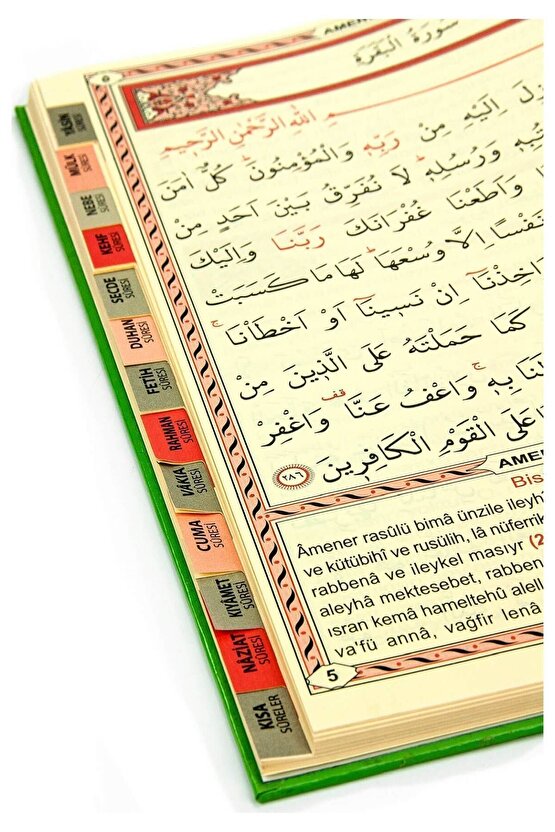 AMENE
سُورَةُ الْبَقَرَةِ
مِ اللّٰهِ الرَّحْمٰنِ الرَّحٖيمِ
نْزِلَ اِلَيْهِ مِنْ رَبِّهٖ وَالْمُؤْمِنُونَۜ كُلٌّ اٰمَنَ
تُبِهٖ وَرُسُلِهٖۜ لَا نُفَرِّقُ بَيْنَ اَحَدٍ مِنْ
ا وَاَطَعْنَا غُفْرَانَكَ رَبَّنَا وَاِلَيْكَ
نَفْسًا اِلَّا وُسْعَهَاۜ لَهَا مَا كَسَبَتْ
اخِذْنَٓا اِنْ نَسٖينَٓا اَوْ اَخْطَأْنَاۚ
كَمَا حَمَلْتَهُ عَلَى الَّذٖينَ مِنْ
لَنَا بِهٖۚ وَاعْفُ عَنَّا۠ وَاغْفِرْ
ا عَلَى الْقَوْمِ الْكَافِرٖينَ ٢٨٦
AMENE
Bis
Âmener rasûlü bimâ ünzile ileyhi
ve kütübihî ve rusülih, lâ nüferrik
rabbenâ ve ileykel masıyr (2
aleyhâ mektesebet, rabben
ısran kemâ hameltehû alell
va'fü annâ, vağfir lenâ
5
YÂSİN SÛRESİ
MÜLK SÛRESİ
NEBE SÛRESİ
KEHF SÛRESİ
SECDE SÛRESİ
DUHAN SÛRESİ
FETİH SÛRESİ
RAHMAN SÛRESİ
VÂKIA SÛRESİ
CUMA SÛRESİ
KIYÂMET SÛRESİ
NÂZİAT SÛRESİ
KISA SÛRELER